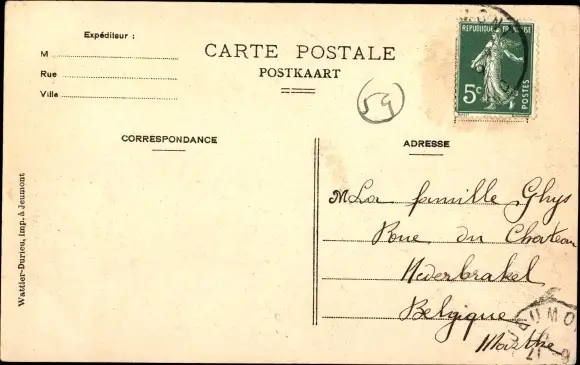 Expéditeur :
M
Rue
Ville
CARTE POSTALE
POSTKAART
59
REPUBLIQUE FRANÇAISE
5c
POSTES
CORRESPONDANCE
ADRESSE
M La famille Ghys
Rue du Chateau
Nederbrakel
Belgique
Marthe
Wattier-Durieu, imp. à Jeumont